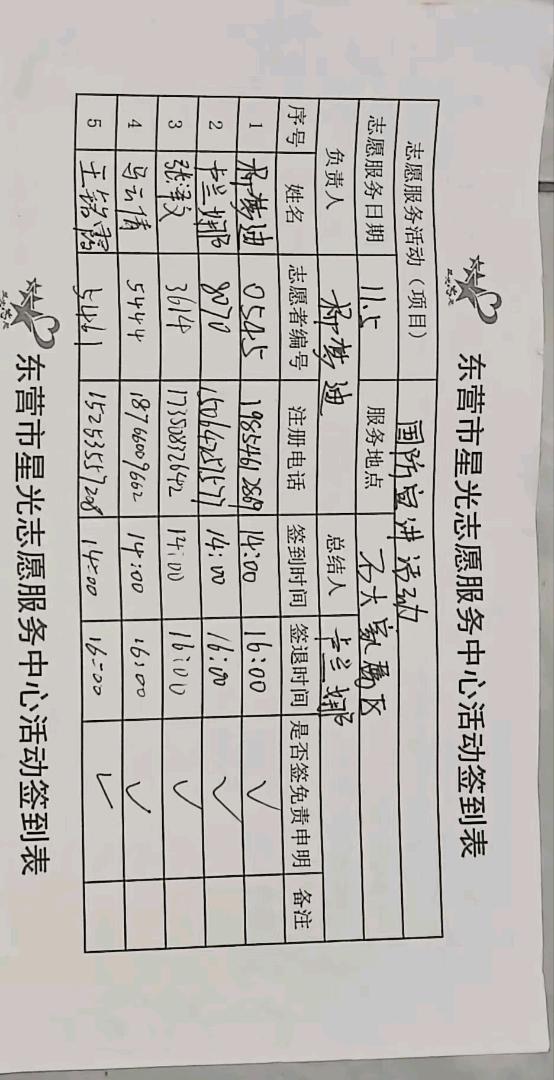 东营市星光志愿服务中心活动签到表
志愿服务活动（项目） 国防宣讲活动
志愿服务日期 11.5 服务地点 石大家属区
负责人 柳梦迪 总结人 卡兰娜
序号 姓名 志愿者编号 注册电话 签到时间 签退时间 是否签免责申明 备注
1 柳梦迪 0545 19854612869 14:00 16:00 ✓
2 卡兰娜 8070 15064251577 14:00 16:00 ✓
3 张泽文 3614 17350872642 14:00 16:00 ✓
4 马云倩 5444 18766009662 14:00 16:00 ✓
5 王铭霞 5461 15253557208 14:00 16:00 ✓
东营市星光志愿服务中心活动签到表